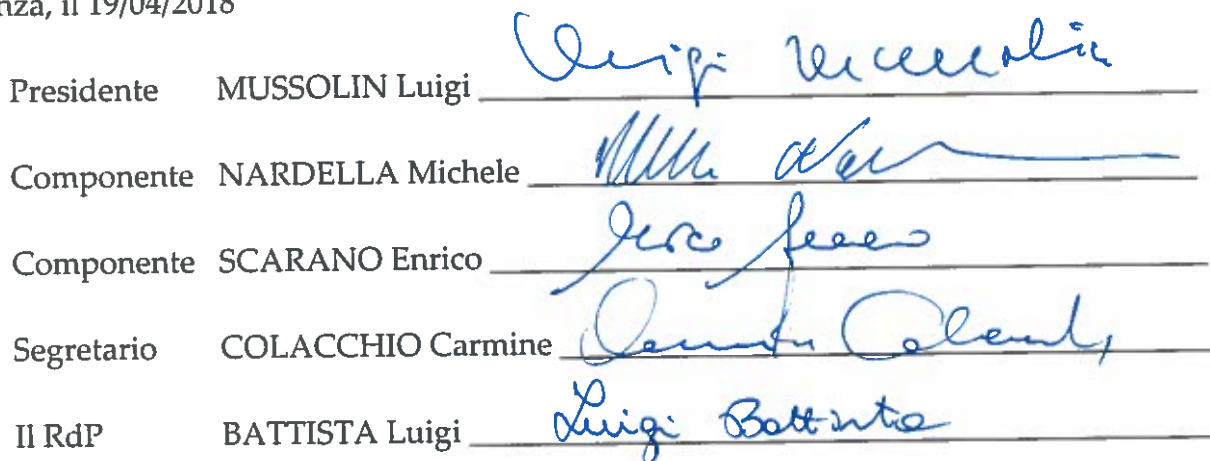 nza, il 19/04/2018
Presidente MUSSOLIN Luigi Luigi Mussolin
Componente NARDELLA Michele
Componente SCARANO Enrico
Segretario COLACCHIO Carmine
Il RdP BATTISTA Luigi Luigi Battista